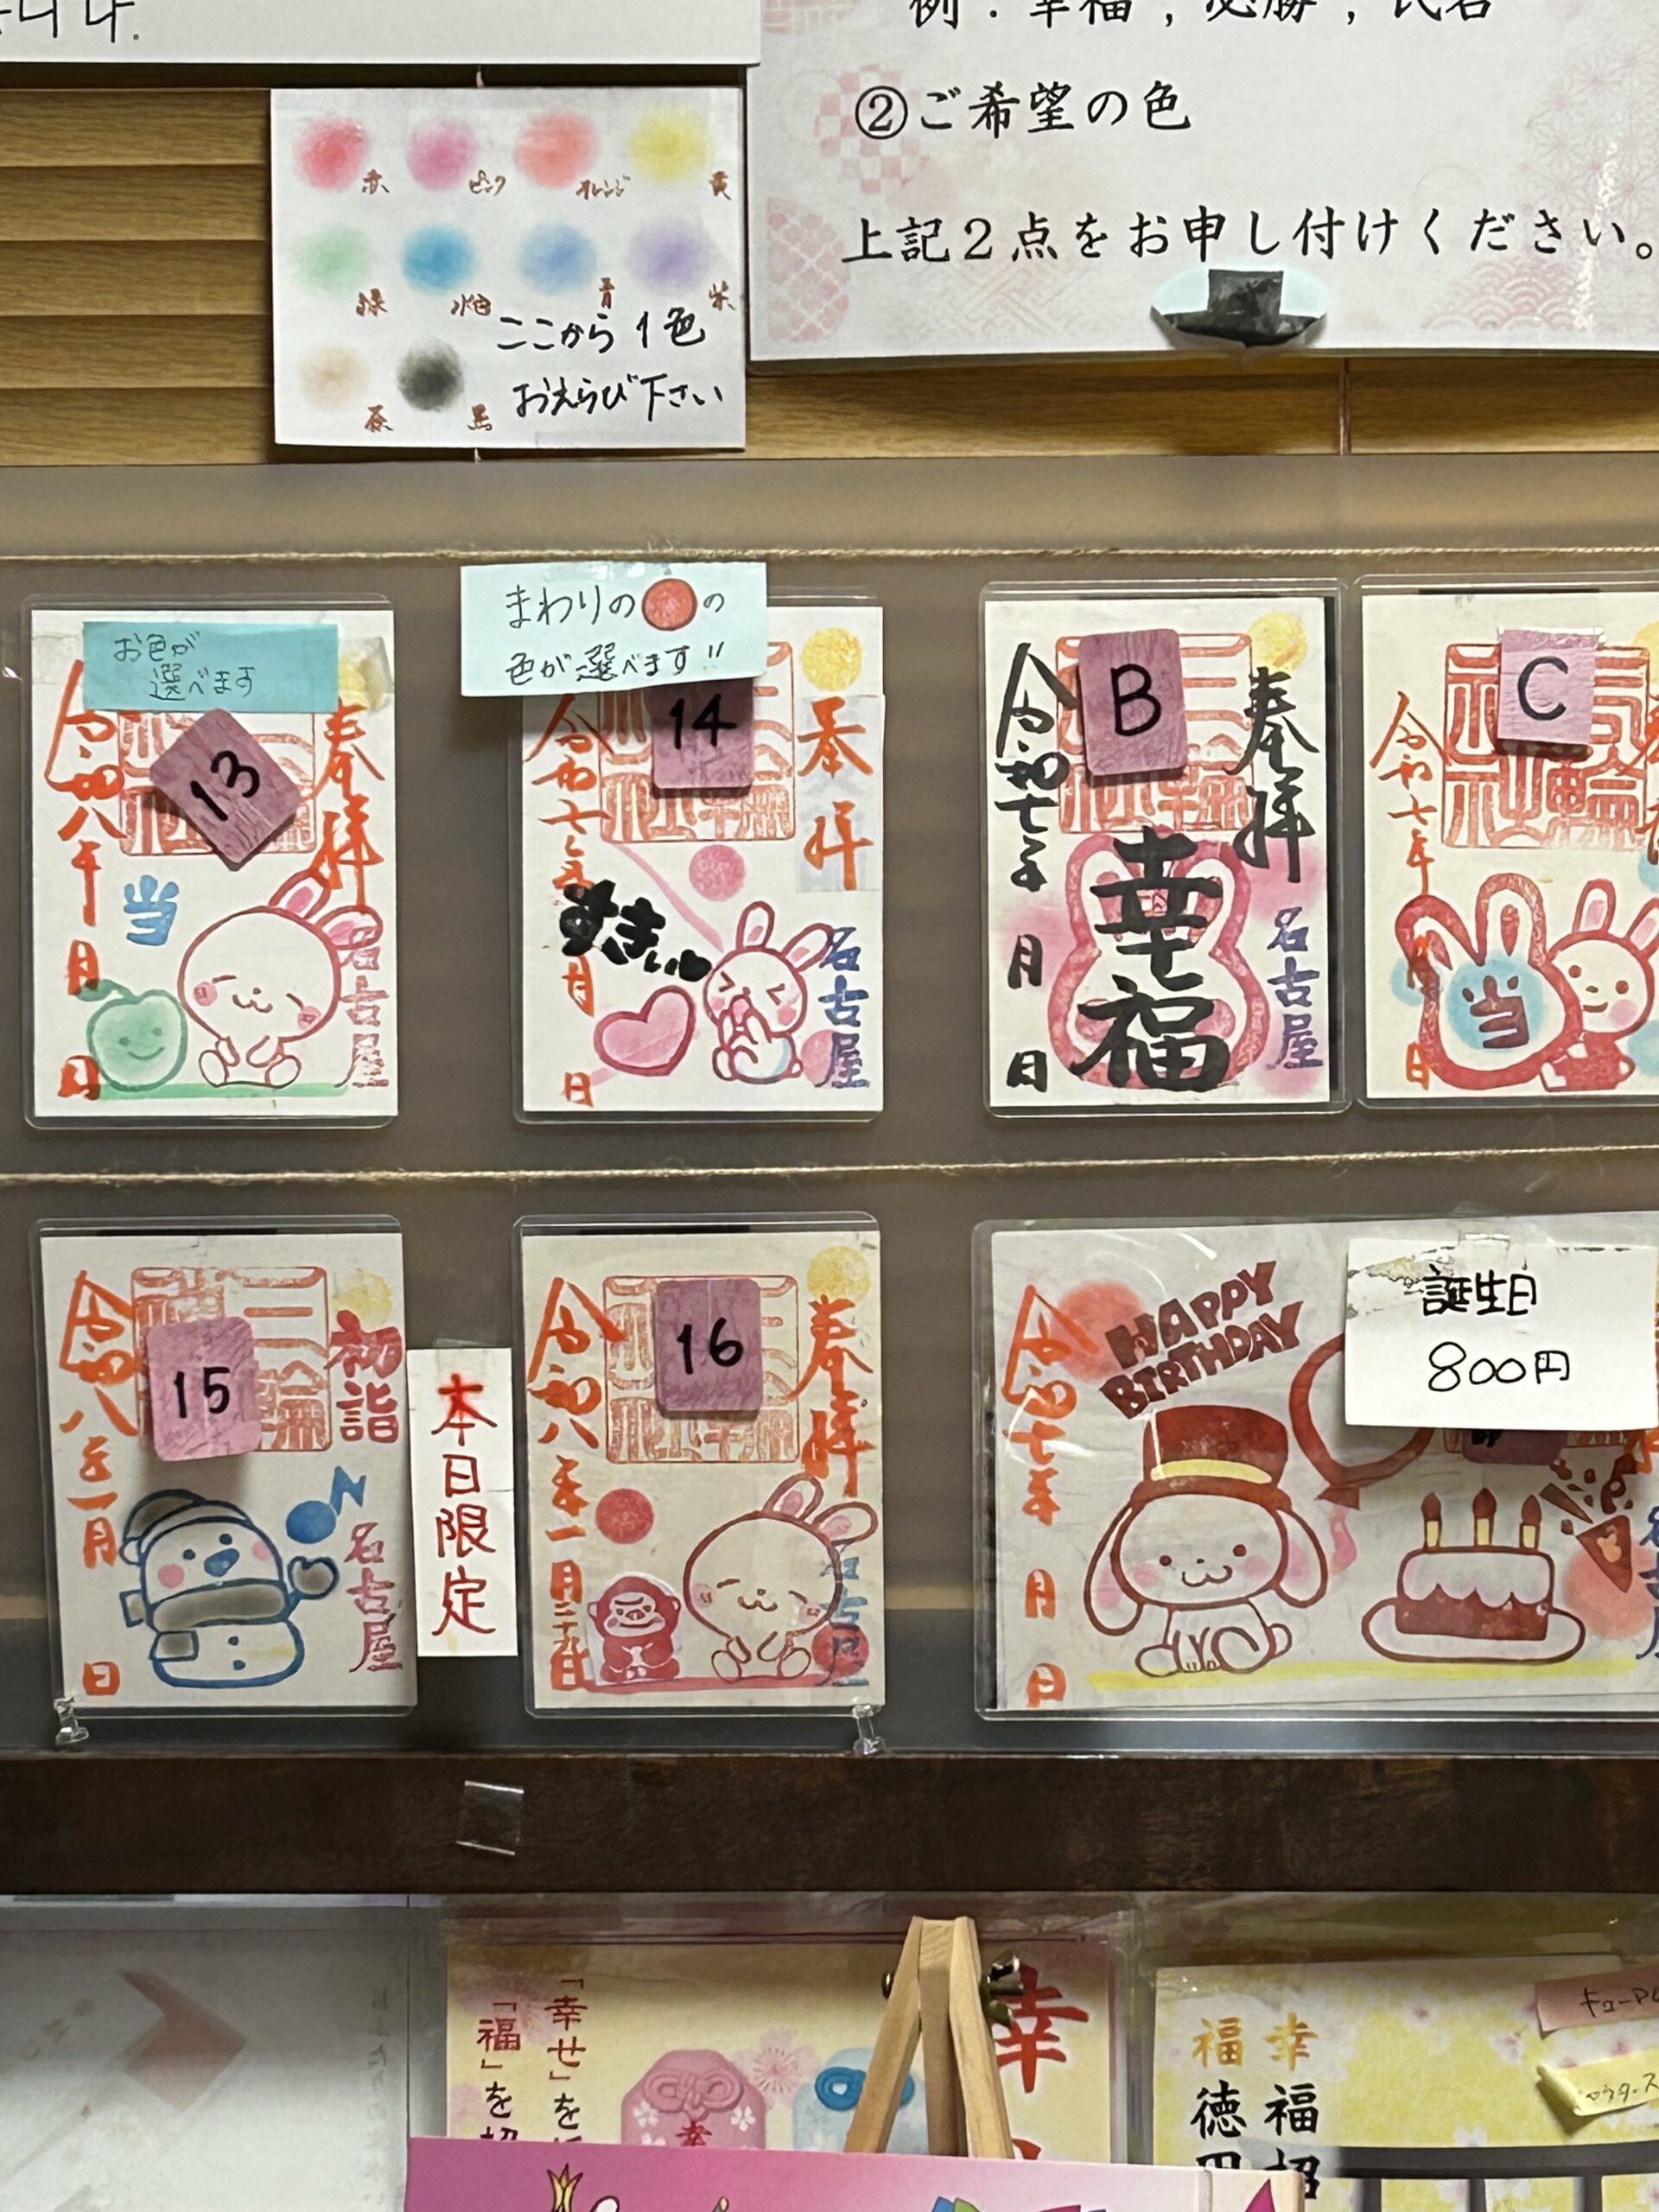 니다.
例：幸福，必勝，氏名
②ご希望の色
上記２点をお申し付けください。
赤
ピンク
オレンジ
黄
緑
水色
青
紫
茶
黒
ここから1色
おえらび下さい
お色が
選べます
13
奉拝
令和八年
月
日
当
名古屋
まわりの🔴の
色が選べます!!
14
奉拝
令和七年
月
日
すきぃー
名古屋
B
奉拝
令和七年
月
日
幸福
名古屋
C
令和七年
日
当
15
初詣
令和八年一月
日
名古屋
本日限定
16
奉拝
令和八年一月二十九日
名古屋
誕生日
800円
HAPPY
BIRTHDAY
令和七年
月
日
「幸せ」を
「福」を招
幸
幸
幸福招
福徳円